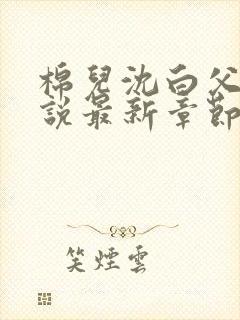 棉兒沈白父
說最新章節
笑煙雲